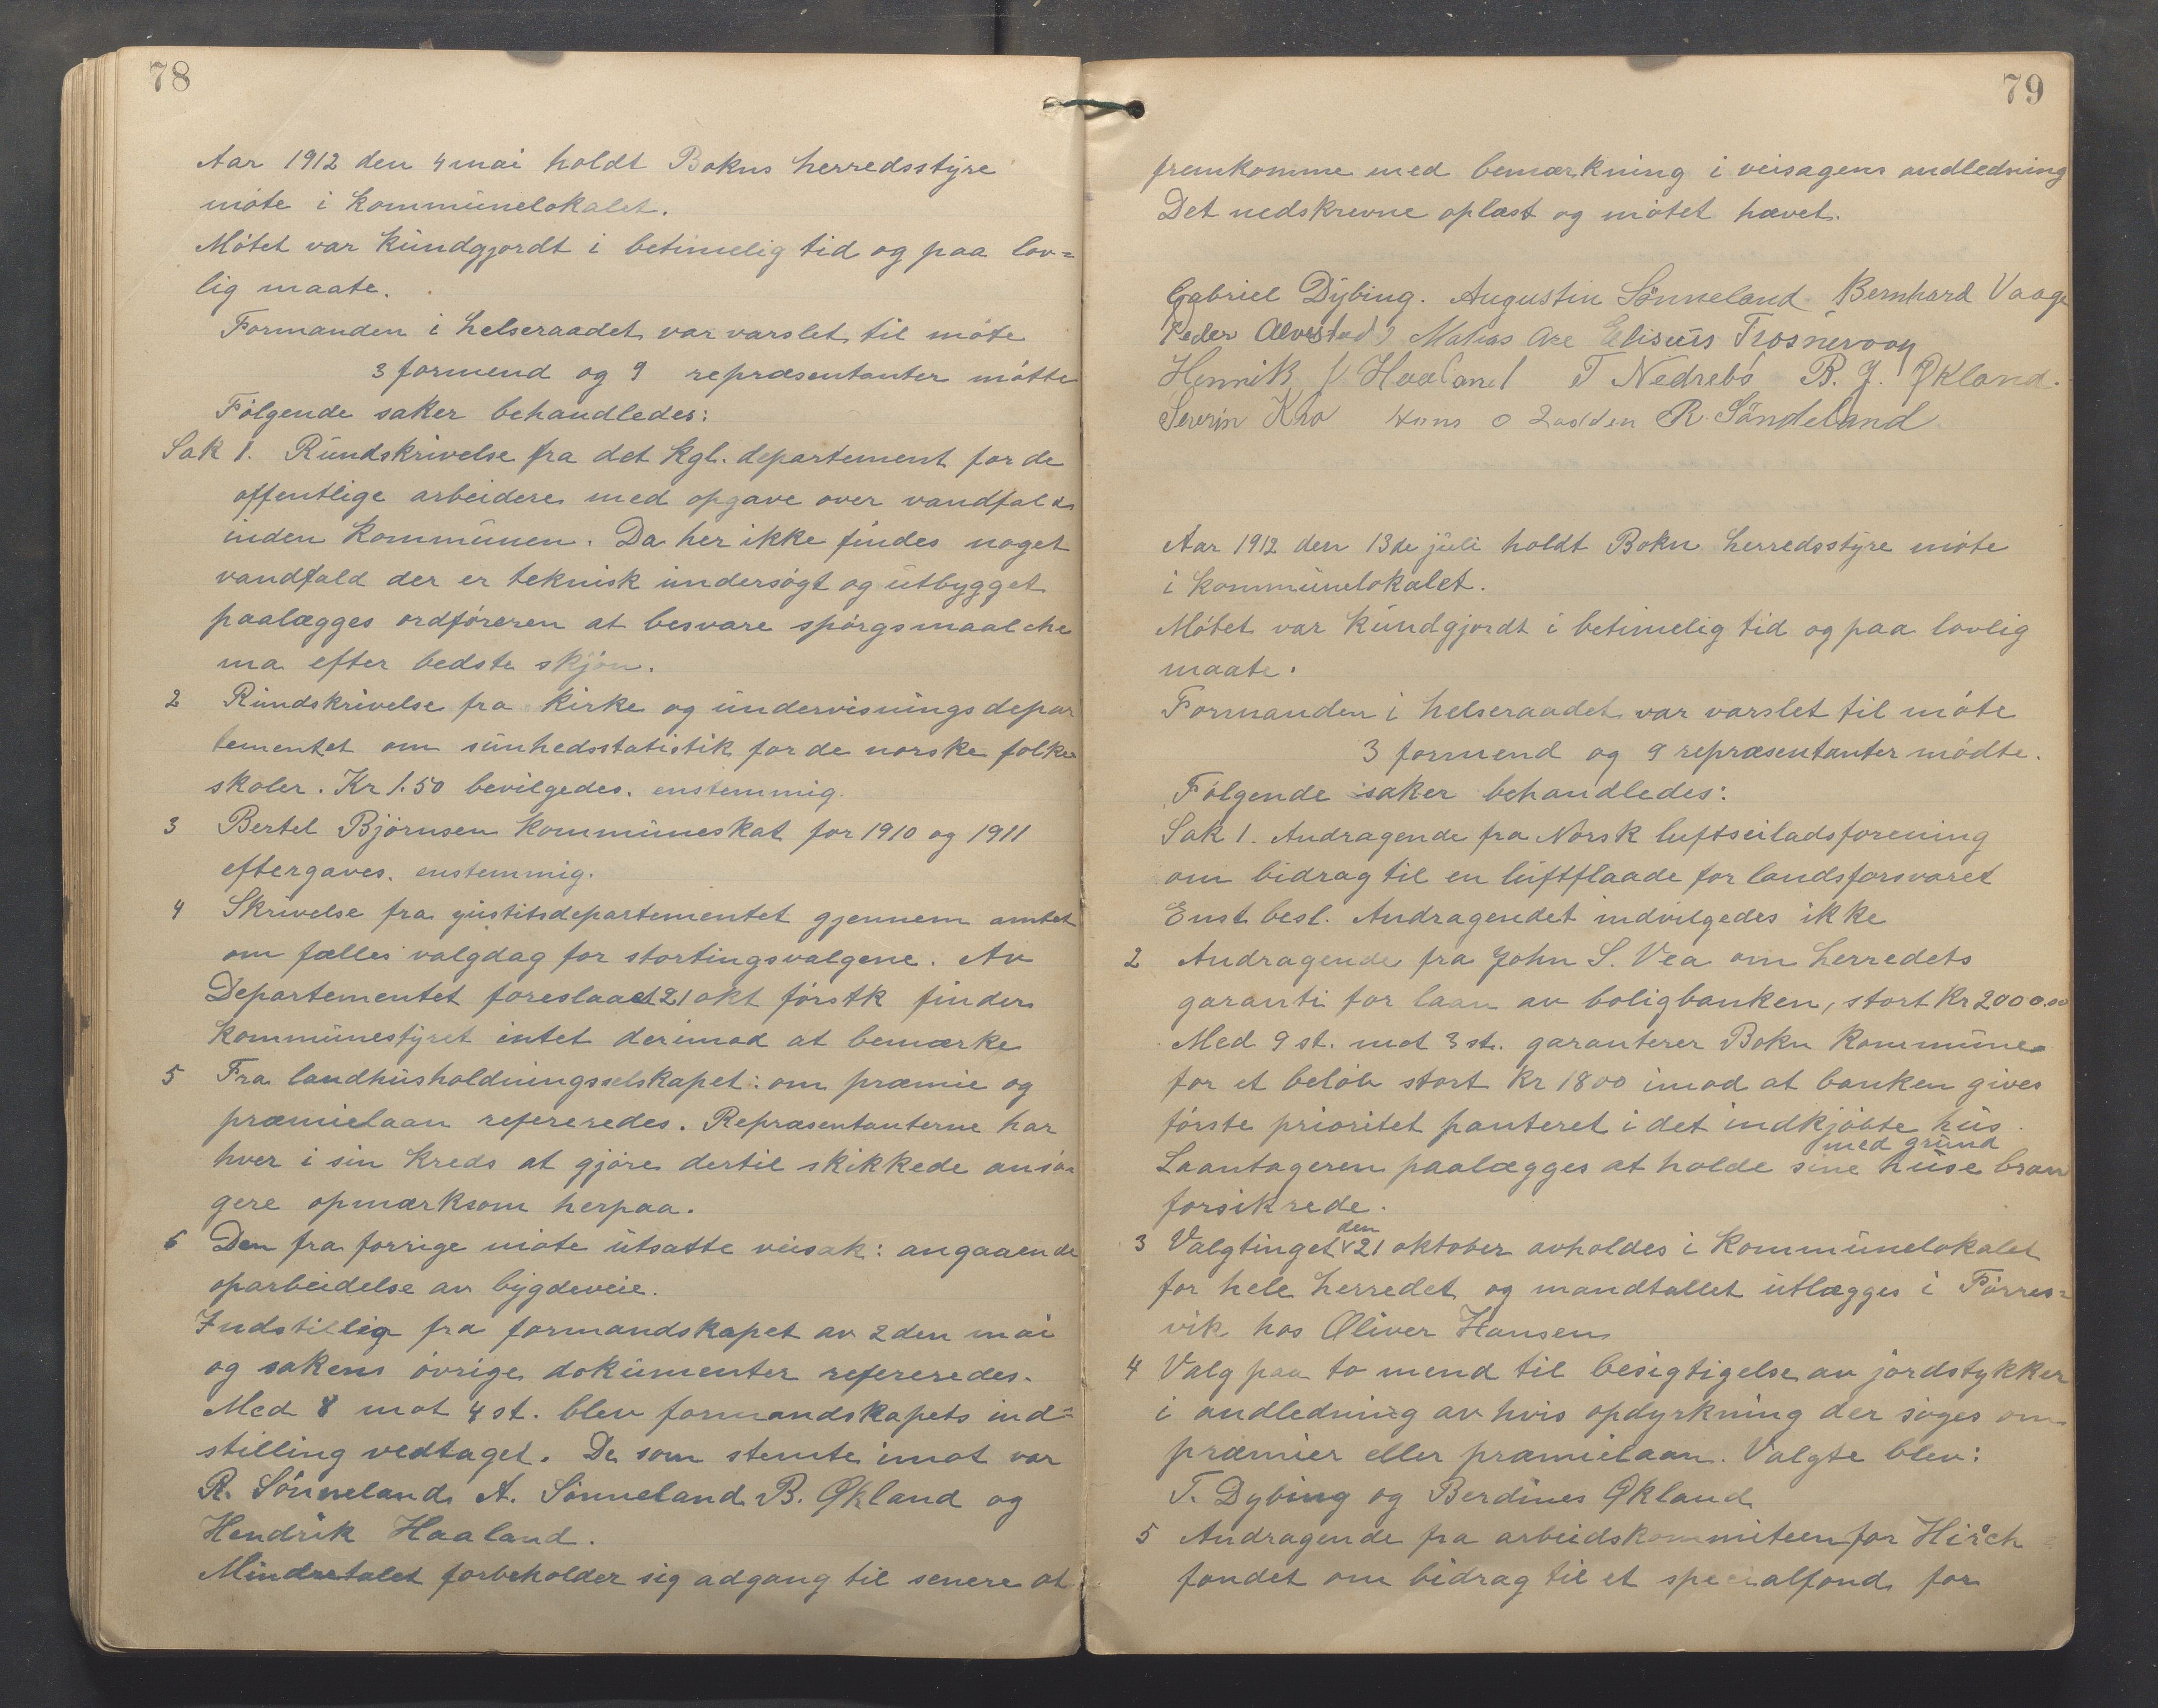 78
Aar 1912 den 4 mai holdt Bokns herredsstyre
møte i kommunelokalet.
Møtet var kundgjordt i betimelig tid og paa lov=
lig maate.
Formanden i helseraadet var varslet til møte
3 formend og 9 repræsentanter møtte
Følgende saker behandledes:
Sak 1. Rundskrivelse fra det kgl. departement for de
offentlige arbeidere med opgave over vandfald
inden kommunen. Da her ikke findes noget
vandfald der er teknisk undersøgt og utbygget
paalægges ordføreren at besvare spørgsmaalche
ma efter bedste skjøn.
2 Rundskrivelse fra kirke og undervisningsdepar
tementet om sunhedsstatistik for de norske folke
skoler. Kr 1.50 bevilgedes. enstemmig.
3 Bertel Bjørnsen kommuneskat for 1910 og 1911
eftergaves. enstemmig.
4 Skrivelse fra justitsdepartementet gjennem amtet
om fælles valgdag for stortingsvalgene. Av
Departementet foreslaaet 21 okt førstk finder
kommunestyret intet derimod at bemærke
5 Fra landhusholdningsselskapet: om præmie og
præmielaan refereredes. Repræsentanterne har
hver i sin kreds at gjøre dertil skikkede ansø=
gere opmærksom herpaa.
6 Den fra forrige møte utsatte veisak: angaaende
oparbeidelse av bygdeveie.
Indstillig fra formandskapet av 2den mai
og sakens øvrige dokumenter refereredes.
Med 8 mot 4 st. blev formandskapets ind=
stilling vedtaget. De som stemte imot var
R. Sønneland A. Sønneland B. Økland og
Hendrik Haaland.
Mindretalet forbeholder sig adgang til senere at
79
fremkomme med bemærkning i veisagens andledning
Det nedskrevne oplæst og møtet hævet.
Gabriel Dybing. Augustin Sønneland Bernhard Vaage
Peder Alvestad Matias Are Elisæus Trosnevaag
Henrik J Haaland T Nedrebø B. J. Økland.
Severin Kro Hans O Lodden R. Søndeland
Aar 1912 den 13de juli holdt Bokn herredsstyre møte
i kommunelokalet.
Møtet var kundgjordt i betimelig tid og paa lovlig
maate.
Formanden i helseraadet var varslet til møte
3 formend og 9 repræsentanter mødte.
Følgende saker behandledes:
Sak 1. Andragende fra Norsk luftseiladsforening
om bidrag til en luftflaade for landsforsvaret
Enst. besl. Andragendet indvilgedes ikke
2 Andragende fra John S. Vea om herredets
garanti for laan av boligbanken, stort kr 2000.00
Med 9 st. mot 3 st. garanterer Bokn kommune
for et beløb stort kr 1800 imod at banken gives
første prioritet panteret i det indkjøbte hus
med grund
Laantageren paalægges at holde sine huse bran
forsikrede.
3 Valgtinget den 21 oktober avholdes i kommunelokalet
for hele herredet og mandtallet utlægges i Førres=
vik hos Oliver Hansen
4 Valg paa to mend til besigtigelse av jordstykker
i andledning av hvis opdyrkning der søges om
præmier eller præmielaan. Valgte blev:
T. Dybing og Berdines Økland
5 Andragende fra arbeidskommiteen for Hirch=
fondet om bidrag til et specialfond for